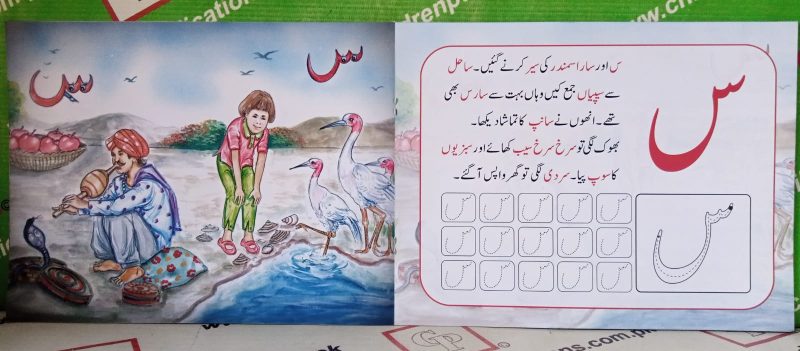 س
س
س اور سارا سمندر کی سیر کرنے گئیں۔ ساحل
سے سیپیاں جمع کیں وہاں بہت سے سارس بھی
تھے۔ انھوں نے سانپ کا تماشا دیکھا۔
بھوک لگی تو سرخ سرخ سیب کھائے اور سبزیوں
کا سوپ پیا۔ سردی لگی تو گھر واپس آ گئے۔
س
س س س س س
س س س س س
س س س س س
س